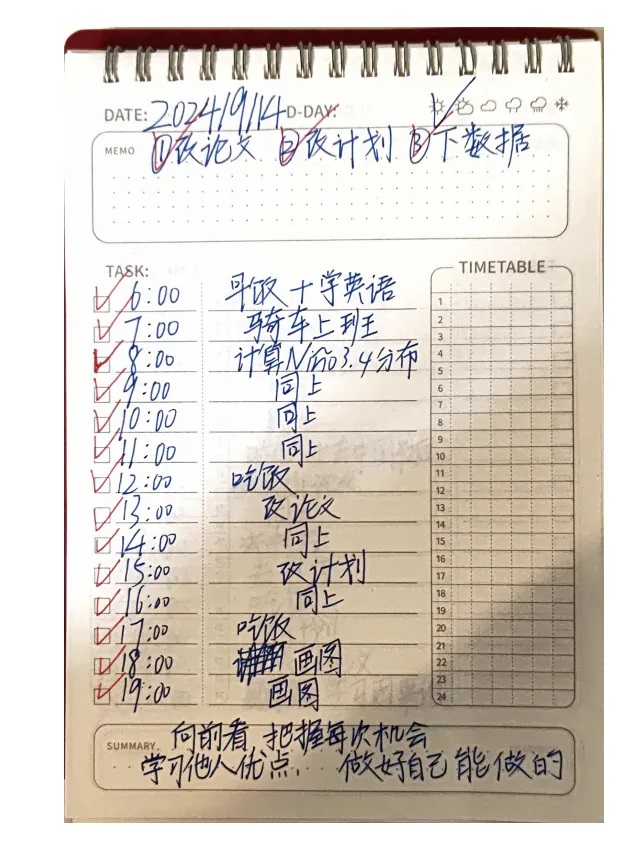 DATE: 2024/9/14 D-DAY:
MEMO ①改论文 ②改计划 ③下数据
TASK:
6:00 早饭十学英语
7:00 骑车上班
8:00 计算 3.4分布
9:00 同上
10:00 同上
11:00 同上
12:00 吃饭
13:00 改论文
14:00 同上
15:00 改计划
16:00 同上
17:00 吃饭
18:00 画图
19:00 画图
TIMETABLE
1
2
3
4
5
6
7
8
9
10
11
12
13
14
15
16
17
18
19
20
21
22
23
24
SUMMARY 向前看 把握每次机会
学习他人优点 做好自己能做的